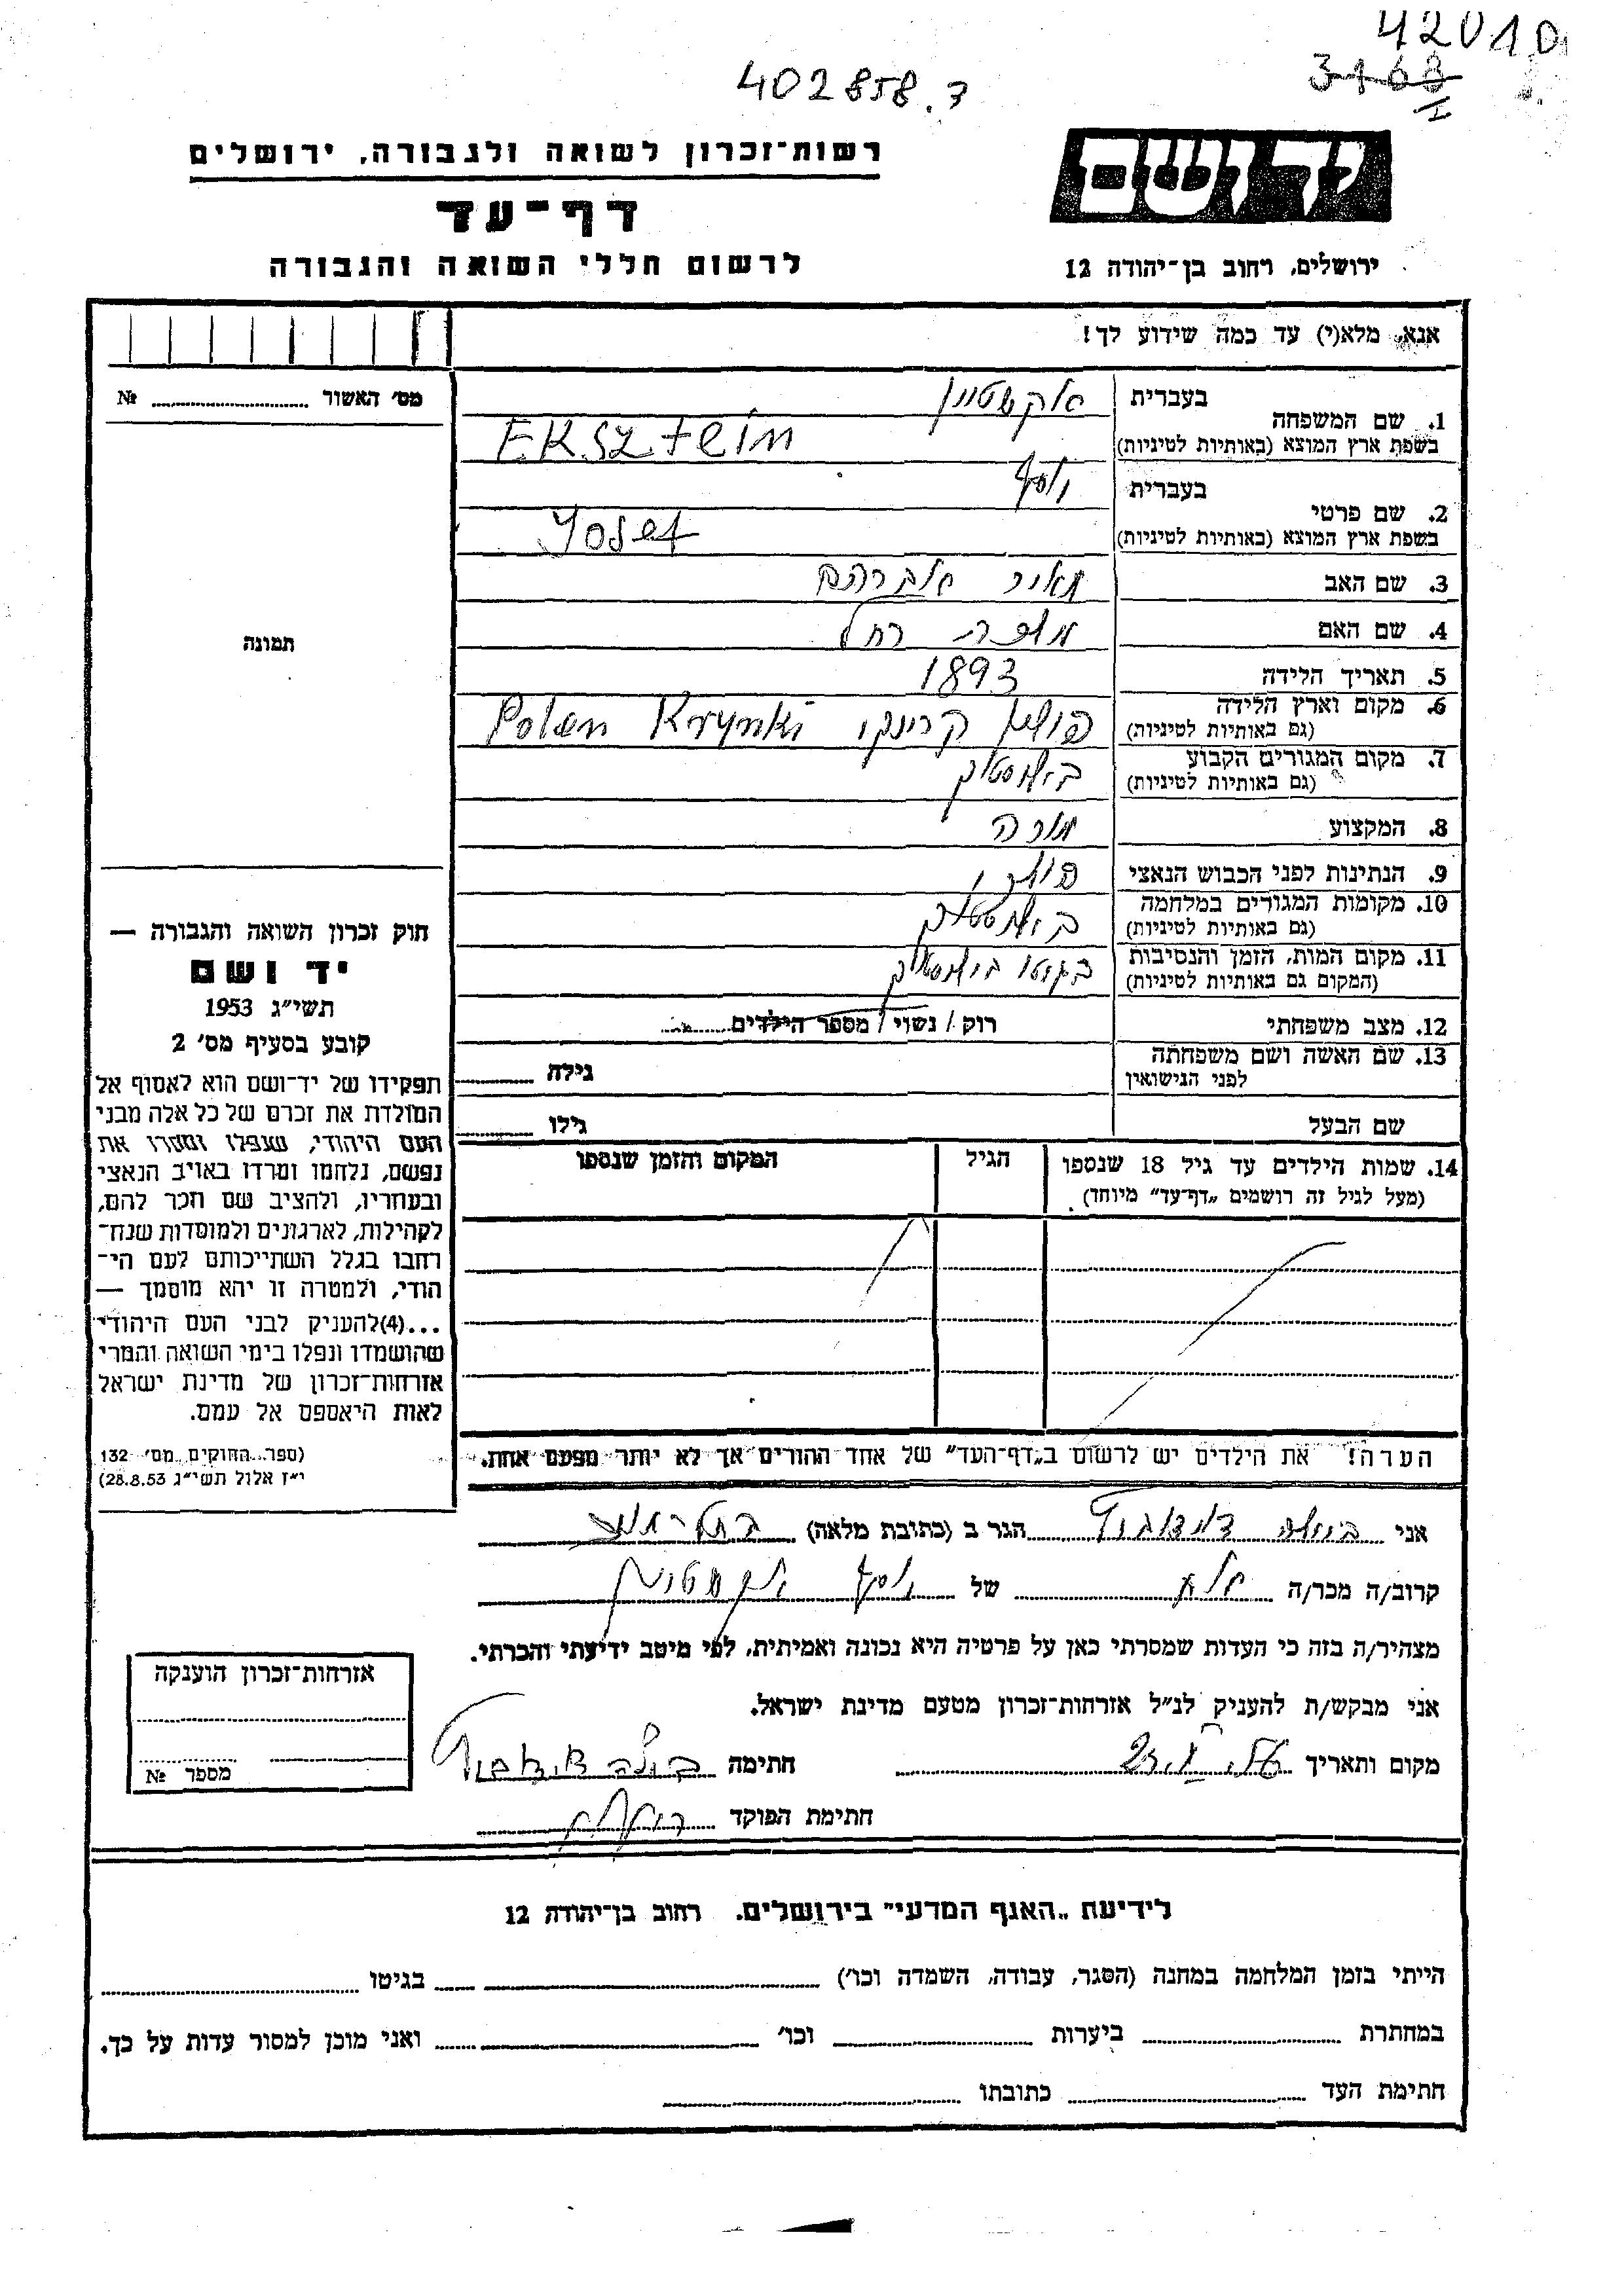 42010
3168
I
402858.7
יד ושם
רשות־זכרון לשואה ולגבורה, ירושלים
דף־עד
לרשום חללי השואה והגבורה
ירושלים, רחוב בן־יהודה 12
אנא, מלא(י) עד כמה שידוע לך!
מס׳ האשור № 
בעברית אקשטיין
1. שם המשפחה
בשפת ארץ המוצא (באותיות לטיניות) EKSztein
בעברית יוסף
2. שם פרטי
בשפת ארץ המוצא (באותיות לטיניות) Yosef
3. שם האב מאיר אברהם
4. שם האם רחל
5. תאריך הלידה 1893
6. מקום וארץ הלידה פולין קרינקי Polen Krynki
(גם באותיות לטיניות)
7. מקום המגורים הקבוע ביאליסטוק
(גם באותיות לטיניות)
8. המקצוע מורה
9. הנתינות לפני הכבוש הנאצי
10. מקומות המגורים במלחמה ביאליסטוק
(גם באותיות לטיניות)
11. מקום המות, הזמן והנסיבות בגיטו ביאליסטוק
(המקום גם באותיות לטיניות)
12. מצב משפחתי רוק / נשוי / מספר הילדים
13. שם האשה ושם משפחתה גילה
לפני הנישואין
שם הבעל גילו
14. שמות הילדים עד גיל 18 שנספו הגיל המקום והזמן שנספו
(מעל לגיל זה רושמים „דף־עד״ מיוחד).
הערה! את הילדים יש לרשום ב„דף־העד״ של אחד ההורים אך לא יותר מפעם אחת.
תמונה
חוק זכרון השואה והגבורה —
יד ושם
תשי״ג 1953
קובע בסעיף מס׳ 2
תפקידו של יד־ושם הוא לאסוף אל
המולדת את זכרם של כל אלה מבני
העם היהודי, שנפלו ומסרו את
נפשם, נלחמו ומרדו באויב הנאצי
ובעוזריו, ולהציב שם וזכר להם,
לקהילות, לארגונים ולמוסדות שנח־
רחבו בגלל השתייכותם לעם הי־
הודי, ולמטרה זו יהא מוסמך —
...(4)להעניק לבני העם היהודי
שהושמדו ונפלו בימי השואה והמרי
אזרחות־זכרון של מדינת ישראל
לאות היאספם אל עמם.
(ספר החוקים מס׳ 132
י״ז אלול תשי״ג 28.8.53)
אני הגר ב (כתובת מלאה)
קרוב/ה מכר/ה של יוסף אקשטיין
מצהיר/ה בזה כי העדות שמסרתי כאן על פרטיה היא נכונה ואמיתית, לפי מיטב ידיעתי והכרתי.
אני מבקש/ת להעניק לנ״ל אזרחות־זכרון מטעם מדינת ישראל.
מקום ותאריך חתימה
חתימת הפוקד
אזרחות־זכרון הוענקה
מספר №
לידיעת „האגף המדעי״ בירושלים. רחוב בן־יהודה 12
הייתי בזמן המלחמה במחנה (הסגר, עבודה, השמדה וכו׳) בגיטו
במחתרת ביערות וכו׳ ואני מוכן למסור עדות על כך.
חתימת העד כתובתו